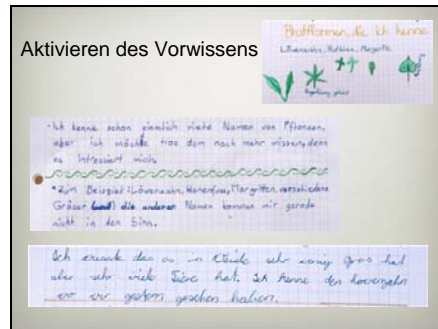 Aktivieren des Vorwissens
Blattformen, die ich kenne
Löwenzahn, Margerite
-Ich kenne schon ziemlich viele Namen von Pflanzen,
aber ich möchte troz dem noch mehr wissen, denn
es intressiert mich.
*Zum Beispiel: Löwenzahn, Hanenfuss, Margritten, verschiedene
Gräser die anderen Namen kommen mir gerade
nicht in den Sinn.
Ich das es in sehr wenig gras hat
aber sehr viele hat. Ich kenne den
wir gestern gesehen haben.